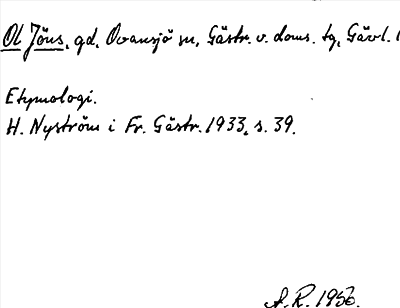 Ol Jöns, gd, Ovansjö sn, Gästr. v. doms. tg, Gävl. l
Etymologi.
H. Nyström i Fr. Gästr. 1933, s. 39.
A.R. 1956.